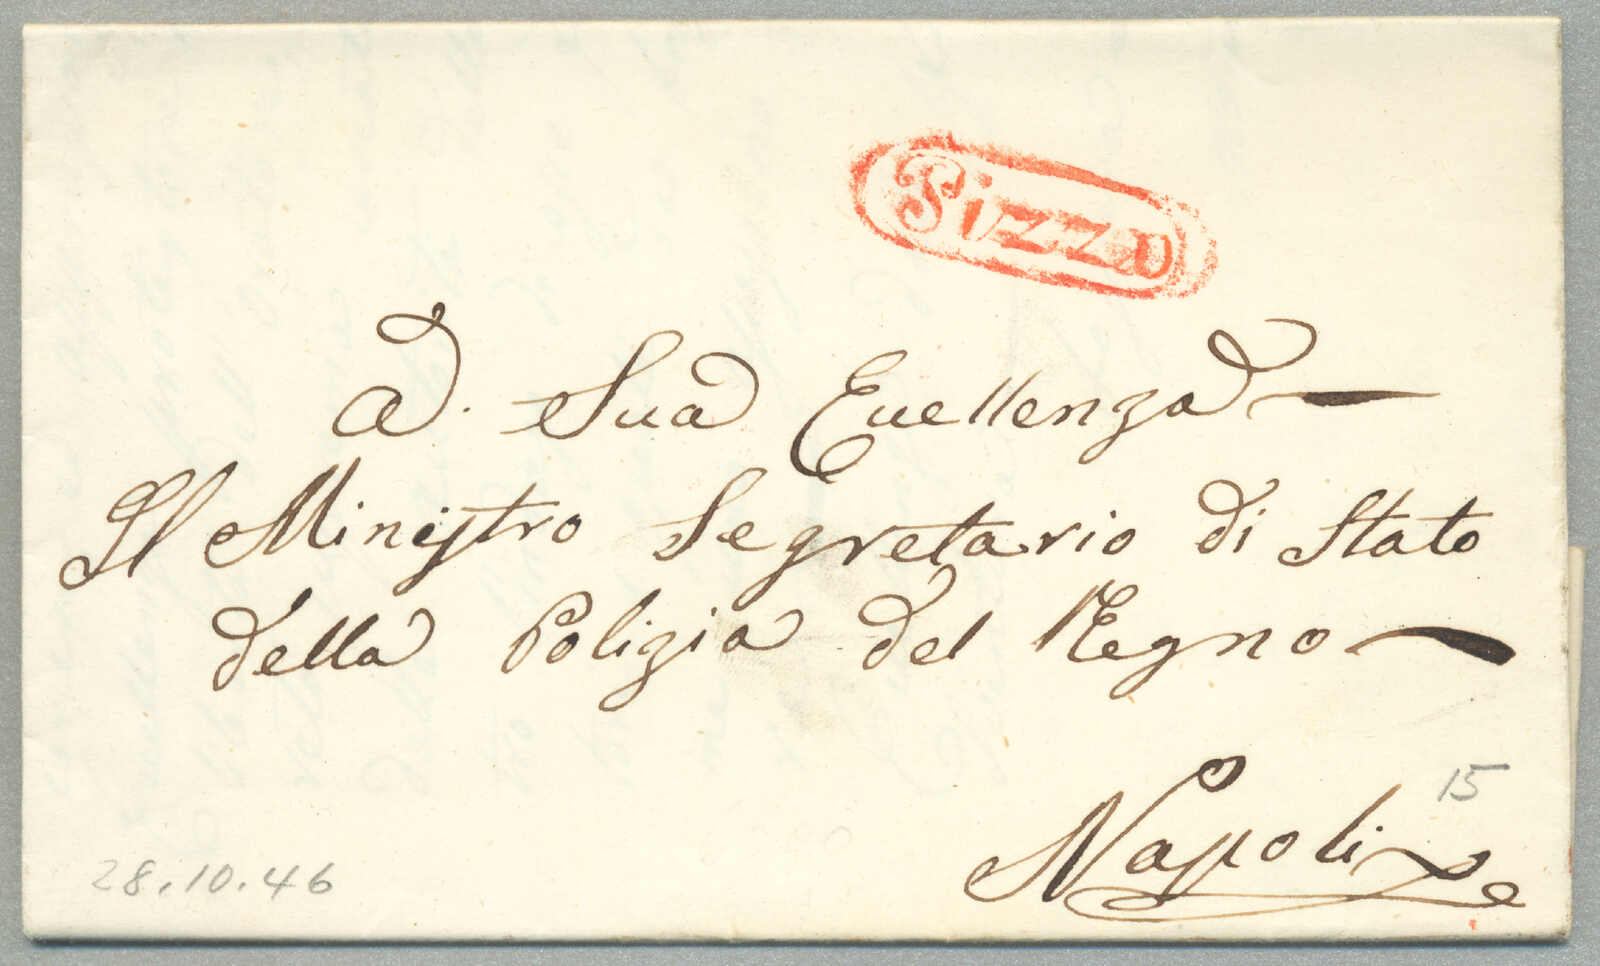 Pizzo
A. Sua Eccellenza
Il Ministro Segretario di Stato
della Polizia del Regno
Napoli
15
28.10.46